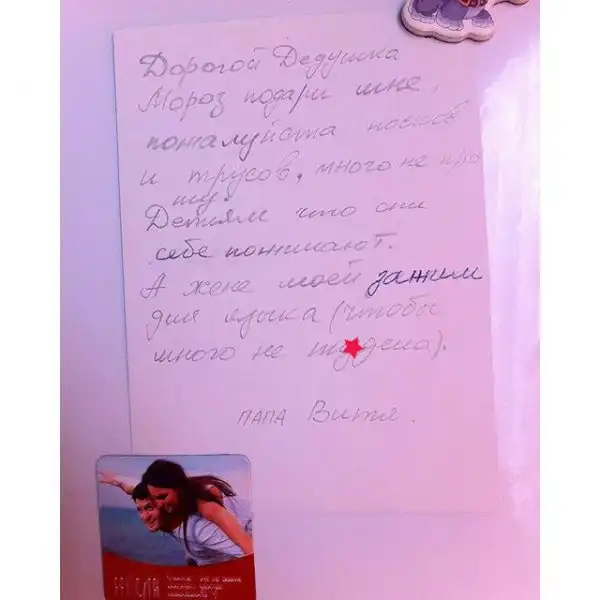 Дорогой Дедушка
Мороз подари мне,
пожалуйста носков
и трусов, много не про
шу.
Детям что они
себе пожелают.
А жене моей зажим
для языка (чтобы
много не пи★дела).
ПАПА Витя.